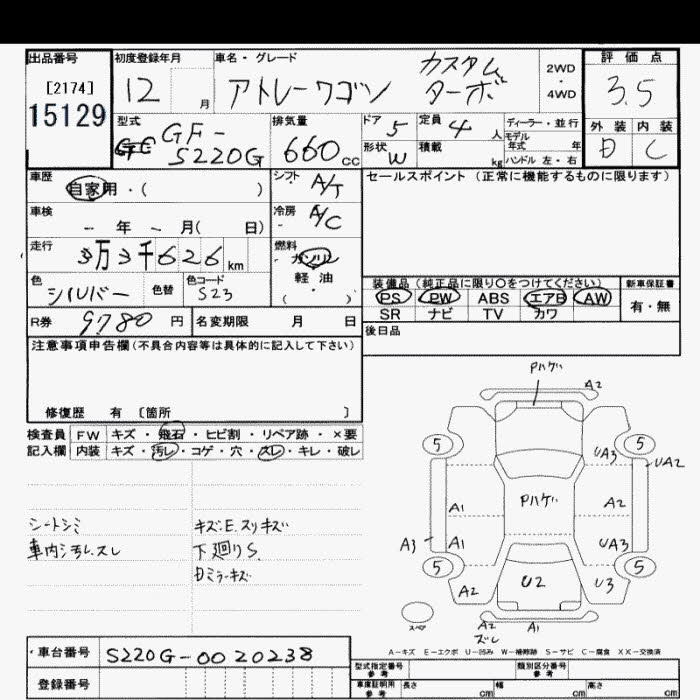 出品番号 初度登録年月 車名・グレード 評価点
[2174] 12 月 アトレーワゴン カスタム ターボ 2WD・4WD 3.5
15129
型式 GF-S220G 排気量 660cc ドア 5 定員 4人 ディーラー・並行
形状 W 積載 kg モデル年式 年
ハンドル 左・右
外装 内装
D C
車歴 自家用・( ) シフト A/T セールスポイント(正常に機能するものに限ります)
車検 - 年 - 月( 日) 冷房 A/C
走行 万 3千626km 燃料 ガソリン
軽油
( )
色 シルバー 色替 色コード S23
装備品(純正品に限り○をつけてください) 新車保証書
PS PW ABS エアB AW 有・無
SR ナビ TV カワ
R券 9780円 名変期限 月 日 後日品
注意事項申告欄(不具合内容等は具体的に記入して下さい)
修復歴 有 [箇所 ]
検査員 FW キズ・飛石・ヒビ割・リペア跡・×要
記入欄 内装 キズ・汚レ・コゲ・穴・スレ・キレ・破レ
シートシミ
車内汚レ、スレ
キズ・E、スリキズ
下廻りS
Dミラーキズ
Pハゲ
A2
5 5
UA3 UA2
Pハゲ
A1 A2
A3 A1 UA3
5 5
A2 U2 U3
スペア A2 A1
ズレ
A-キズ E-エクボ U-凹み W-補修跡 S-サビ C-腐食 XX-交換済
車台番号 S220G-0020238
登録番号
型式指定番号 参考 類別区分番号 参考
車庫証明用 参考 長さ cm 幅 cm 高さ cm